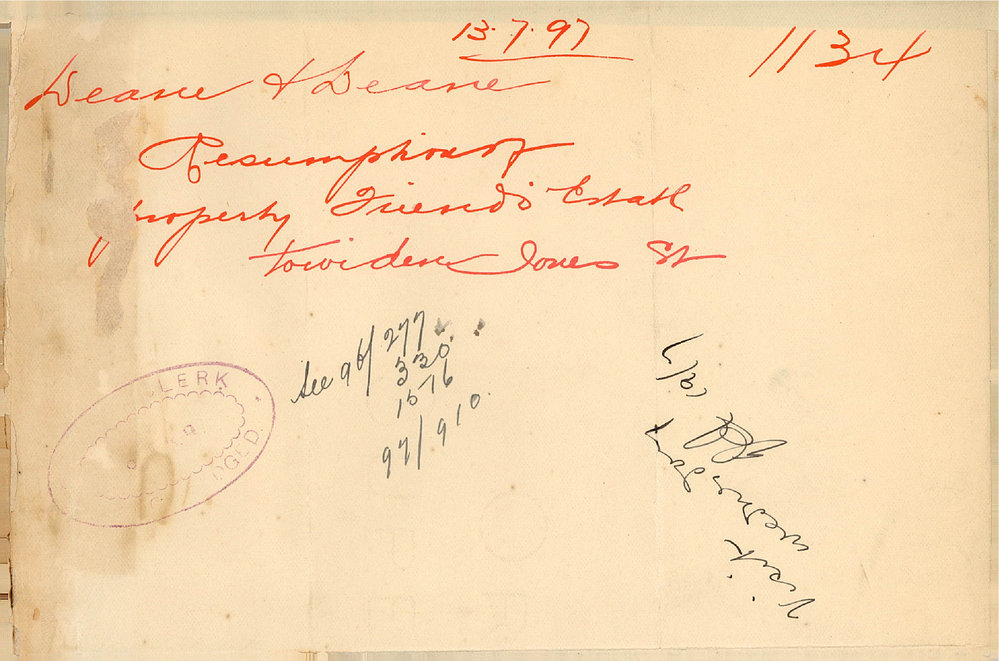 13.7.97
1134
Deane & Deane
Resumption of
property Friend's Estate
to widen Jones St
See 96/277
330
1576
97/910
CLERK
Visit
Wednesday